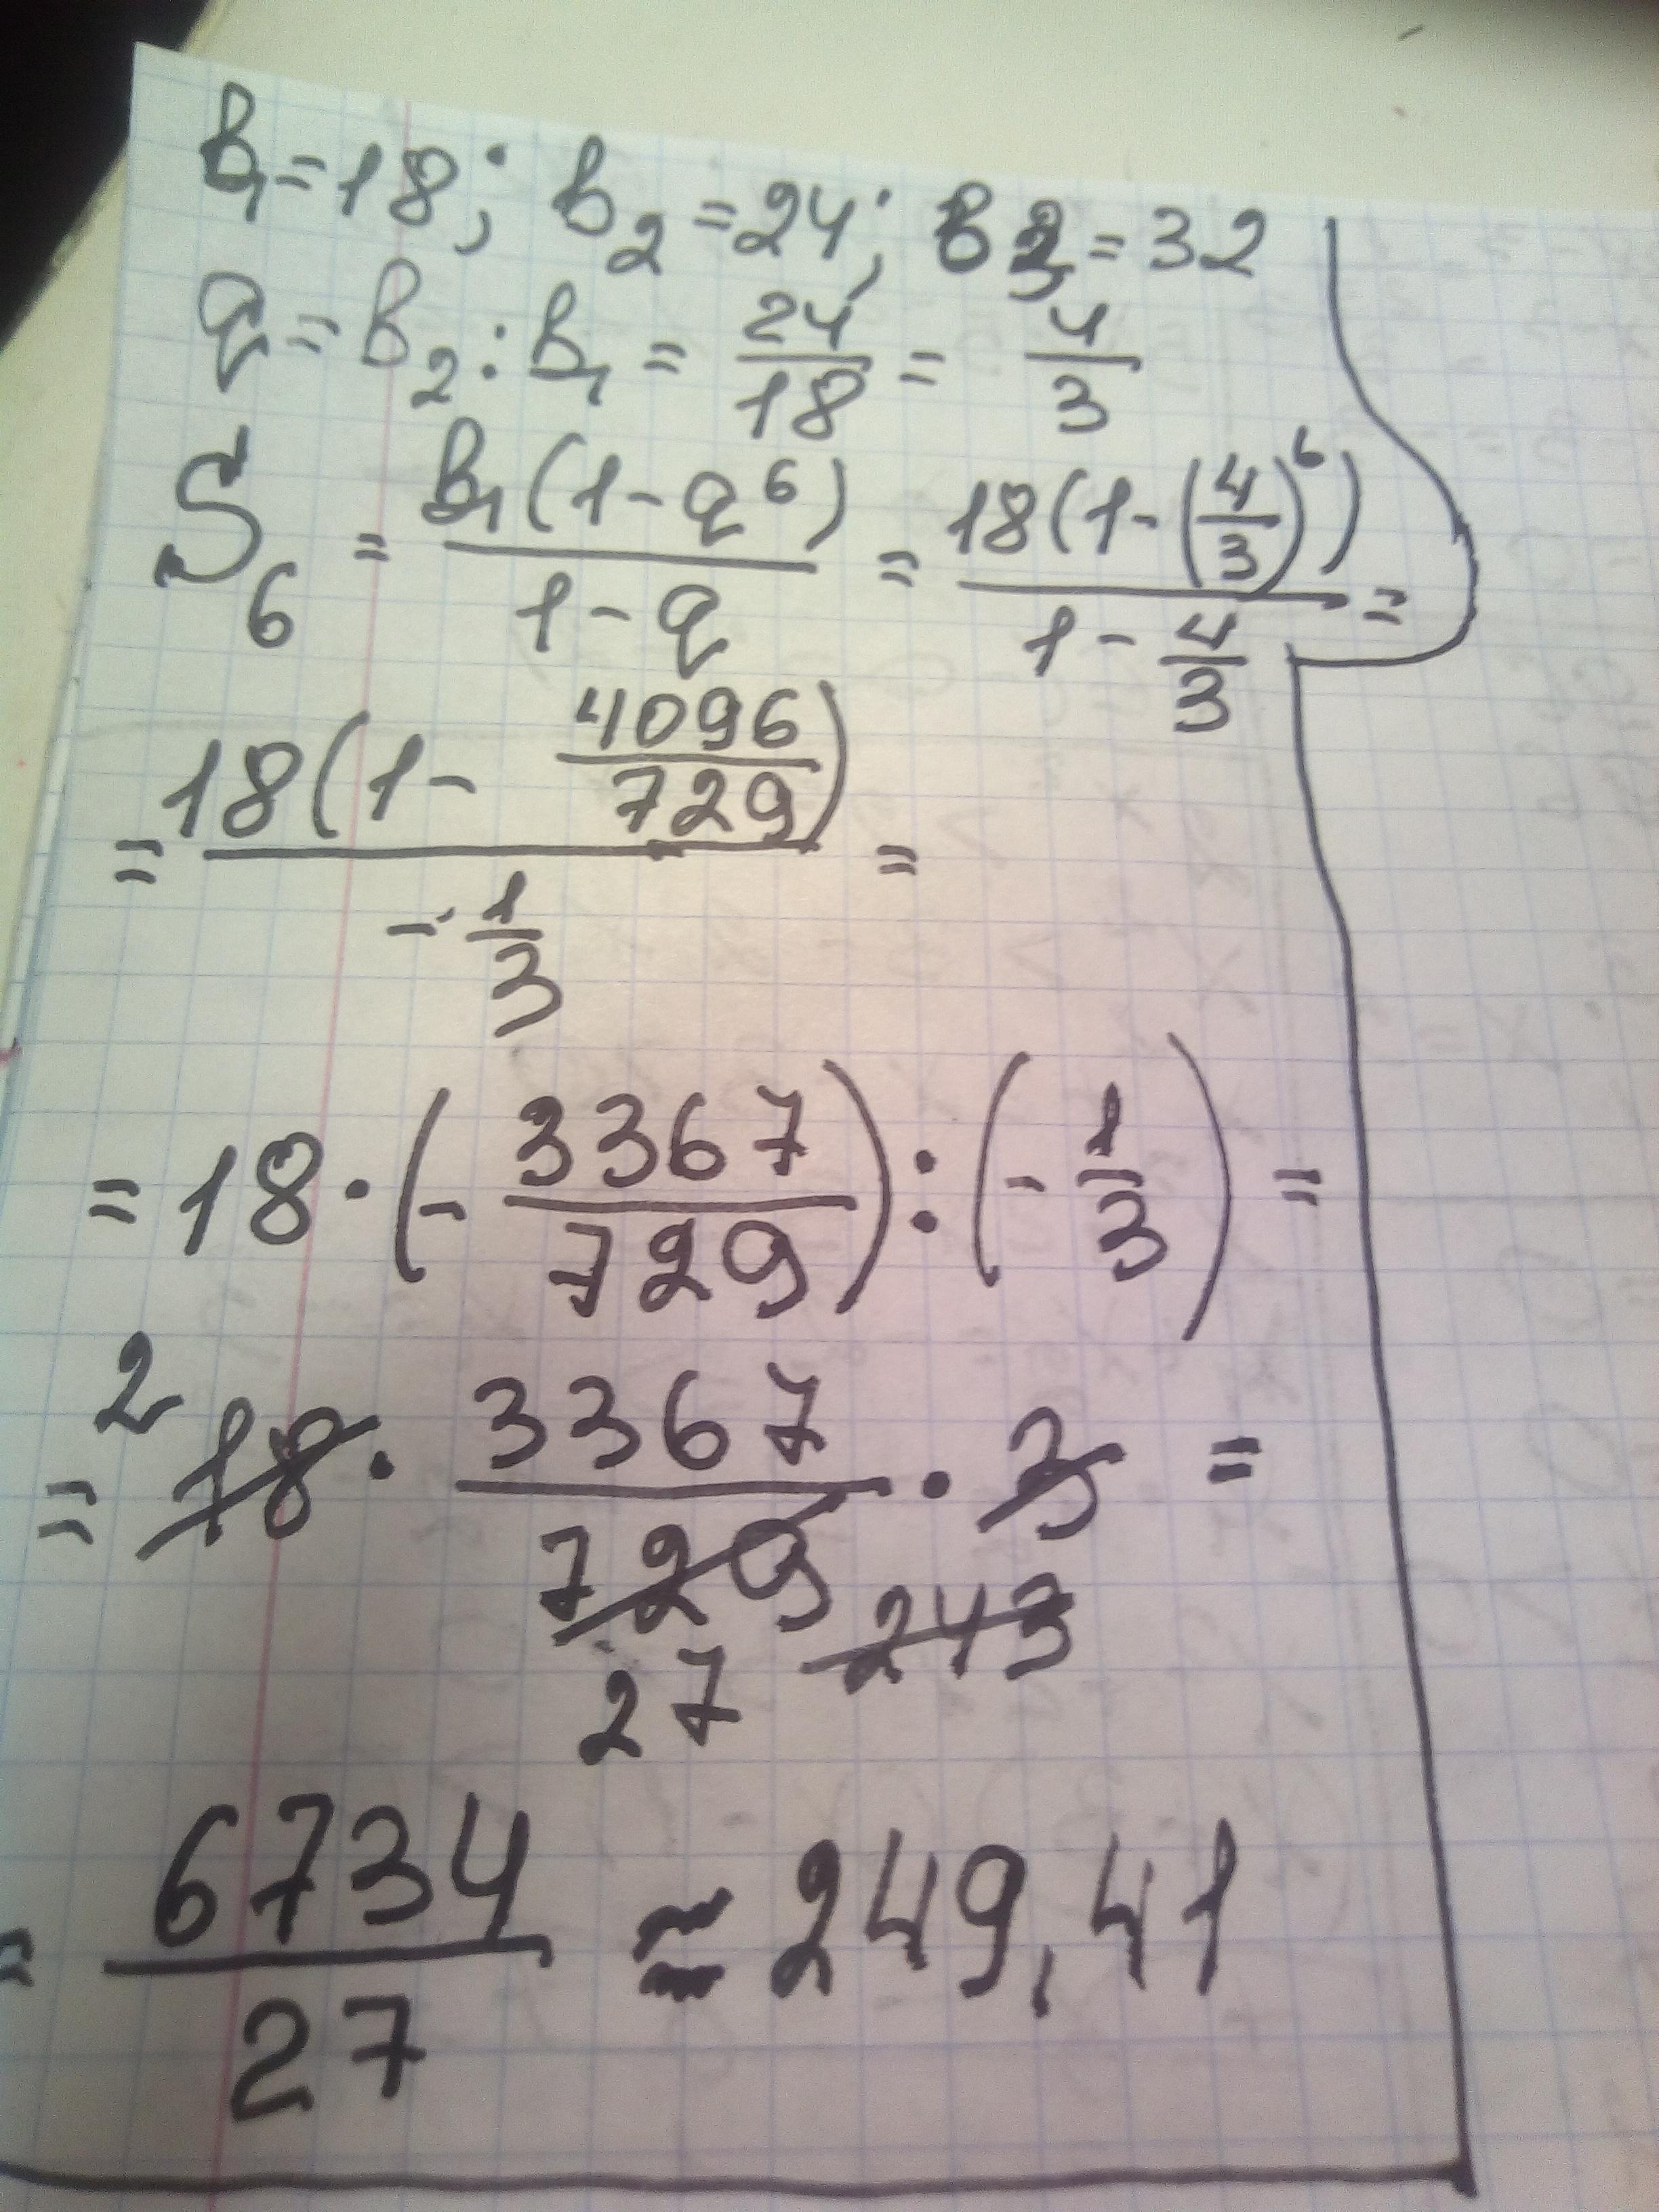 b₁ = 18; b₂ = 24; b₃ = 32
q = b₂ : b₁ = 24/18 = 4/3
S₆ = b₁(1 - q⁶)/(1 - q) = 18(1 - (4/3)⁶)/(1 - 4/3) =
= 18(1 - 4096/729)/(-1/3) =
= 18 · (-3367/729) : (-1/3) =
2
= 18 · 3367/729 · 3 =
243
27
= 6734/27 ≈ 249,41